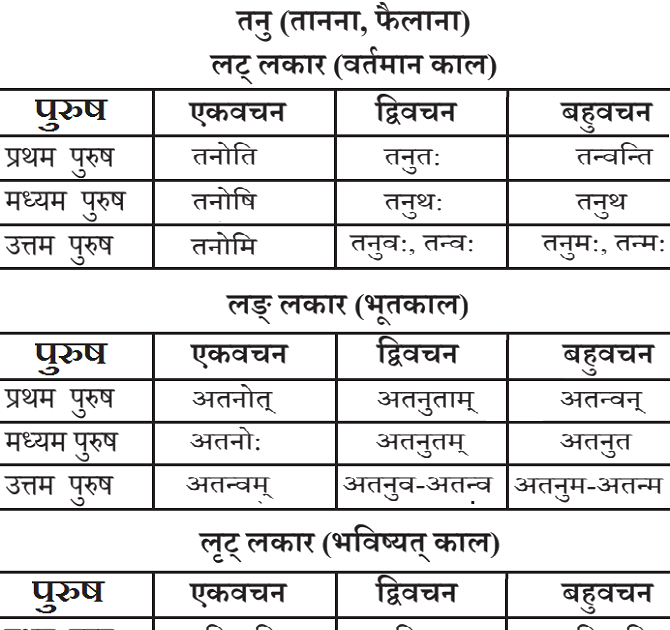 तनु (तानना, फैलाना)
लट् लकार (वर्तमान काल)
पुरुष एकवचन द्विवचन बहुवचन
प्रथम पुरुष तनोति तनुतः तन्वन्ति
मध्यम पुरुष तनोषि तनुथः तनुथ
उत्तम पुरुष तनोमि तनुवः, तन्वः तनुमः, तन्मः
लङ् लकार (भूतकाल)
पुरुष एकवचन द्विवचन बहुवचन
प्रथम पुरुष अतनोत् अतनुताम् अतन्वन्
मध्यम पुरुष अतनोः अतनुतम् अतनुत
उत्तम पुरुष अतन्वम् अतनुव-अतन्व अतनुम-अतन्म
लृट् लकार (भविष्यत् काल)
पुरुष एकवचन द्विवचन बहुवचन